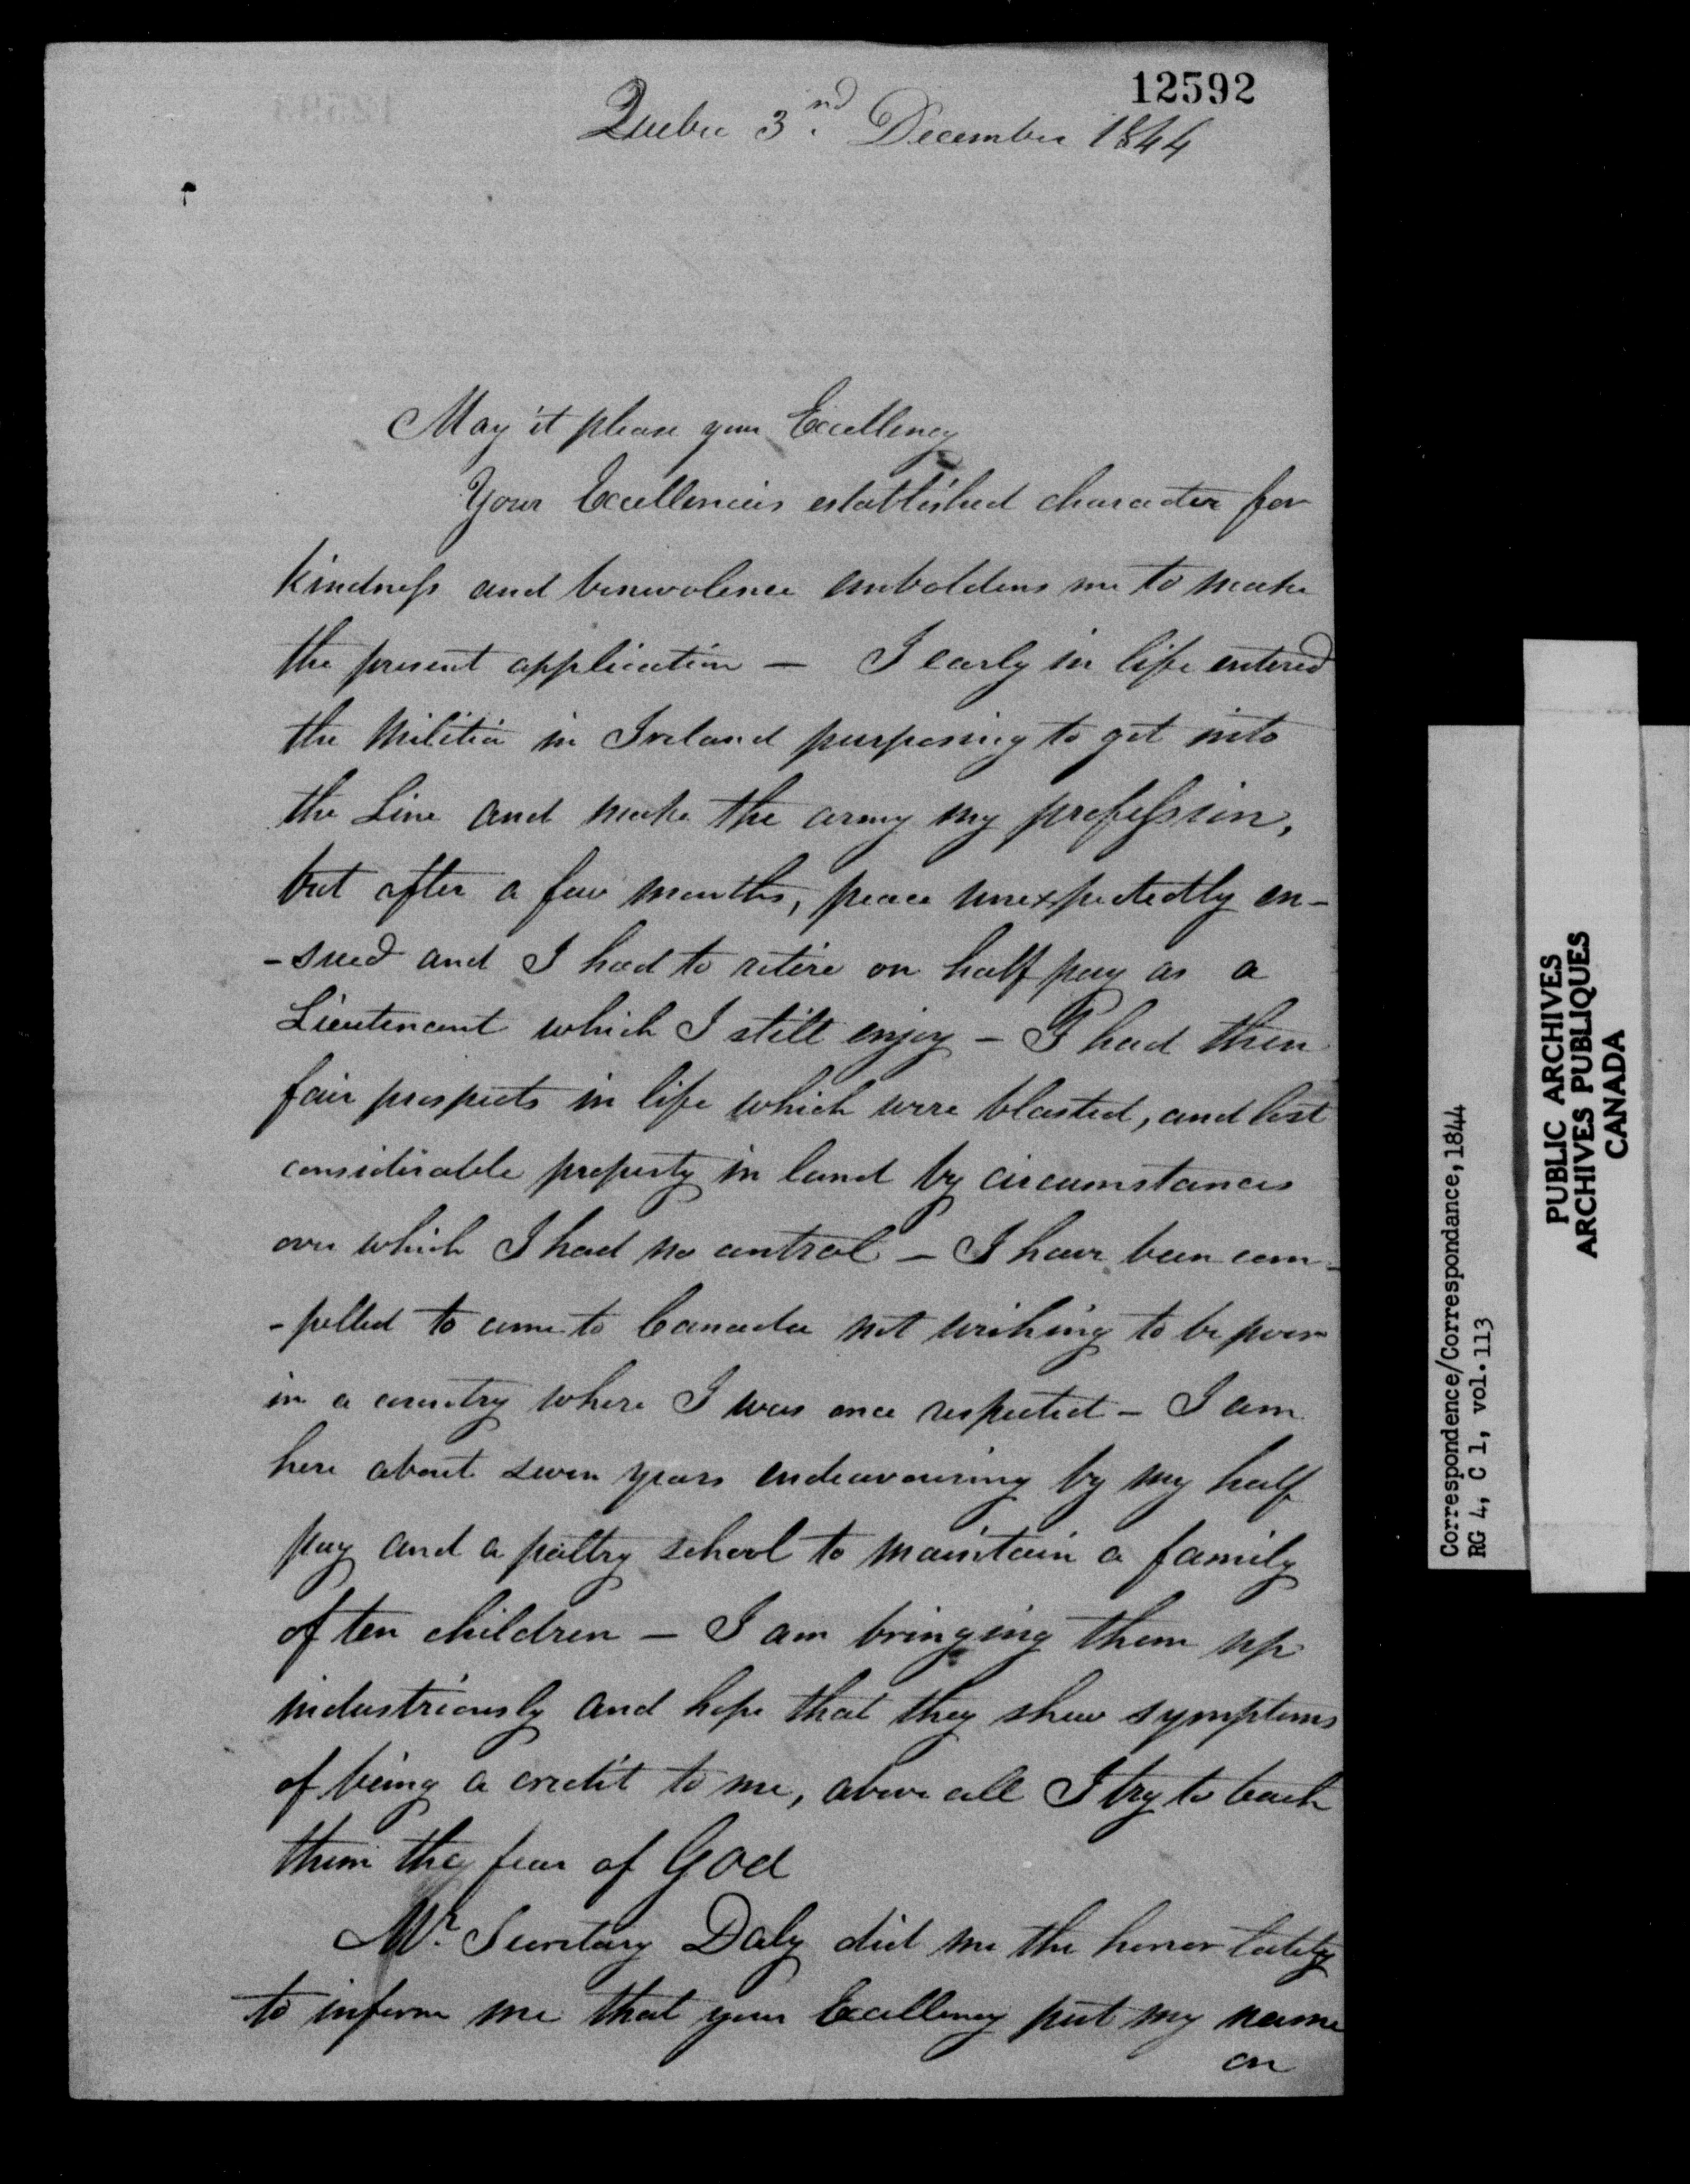 12592
Quebec 3nd December 1844
May it please your Excellency
Your Excellencies established character for
kindness and benevolence emboldens me to make
the present application — I early in life entered
the Militia in Ireland purposing to get into
the Line and make the army my profession,
but after a few months, peace unexpectedly en-
-sued and I had to retire on half pay as a
Lieutenant which I still enjoy — I had then
fair prospects in life which were blasted, and lost
considerable property in land by circumstances
over which I had no control — I have been com-
-pelled to come to Canada not wishing to be poor
in a country where I was once respected — I am
here about seven years endeavouring by my half
pay and a paltry school to maintain a family
of ten children — I am bringing them up
industriously and hope that they shew symptoms
of being a credit to me, above all I try to teach
them the fear of God
Mr. Secretary Daly did me the honor lately
to inform me that your Excellency put my name
on
Correspondence/Correspondance, 1844
RG 4, C 1, vol. 113
PUBLIC ARCHIVES
ARCHIVES PUBLIQUES
CANADA